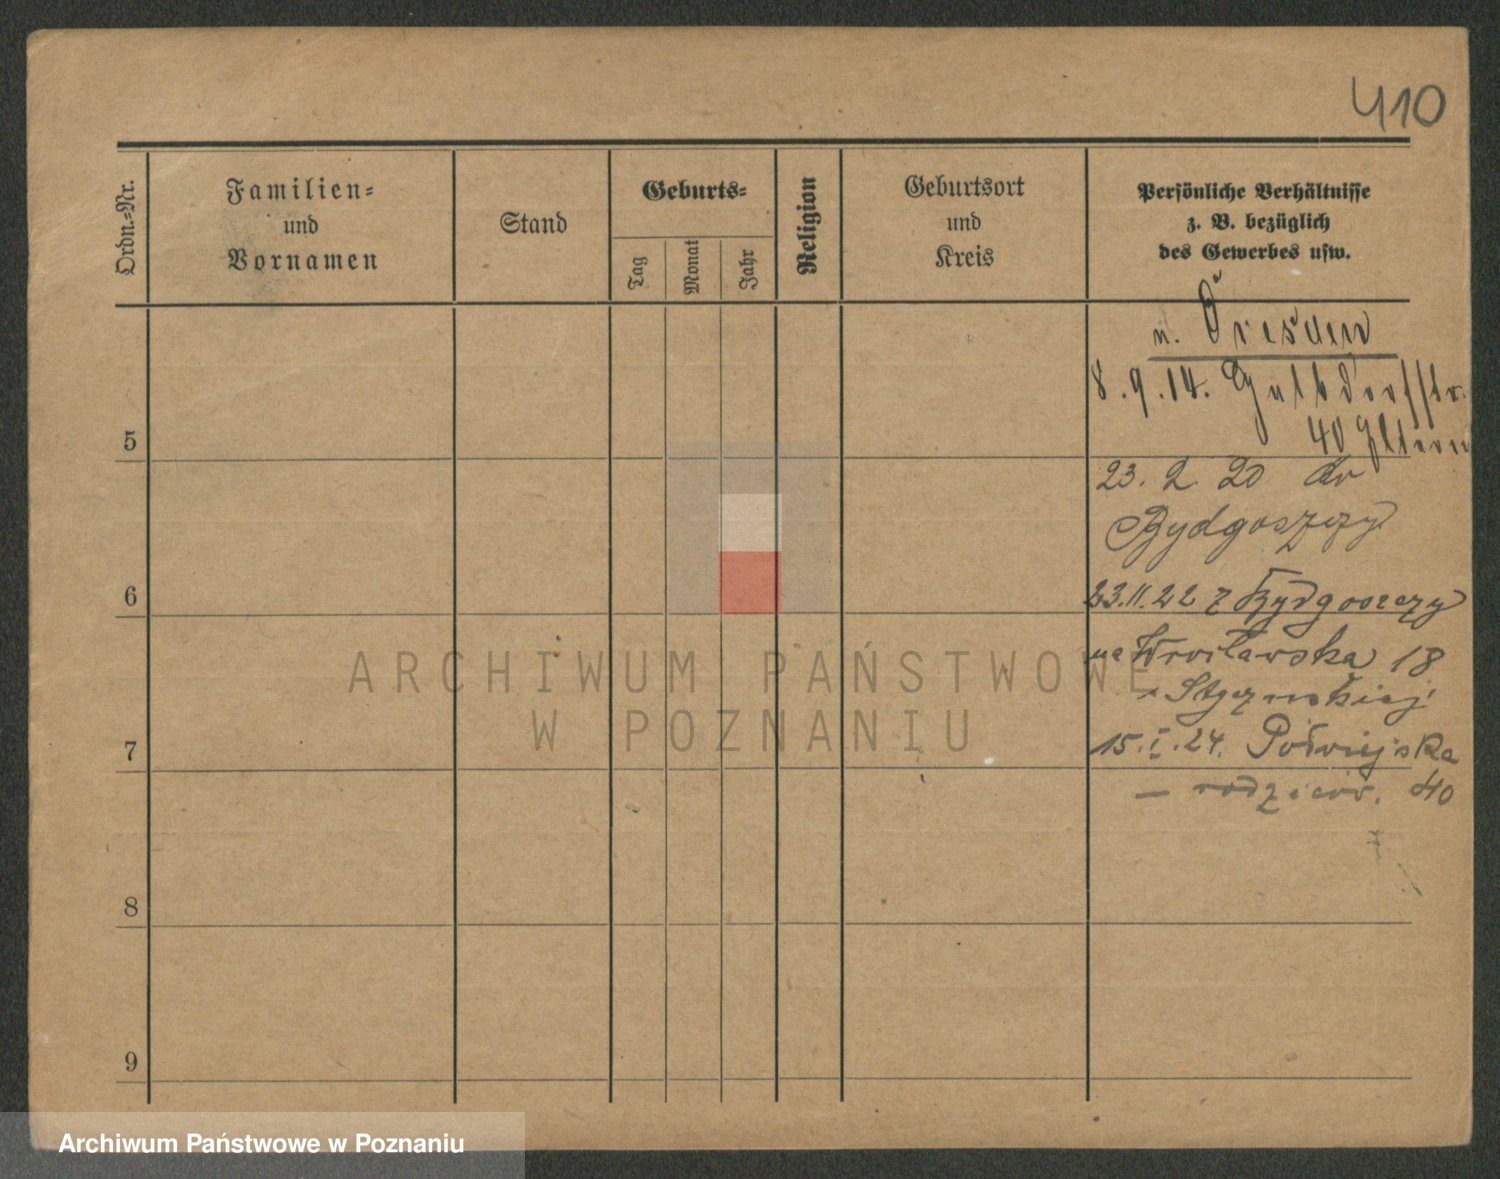 410
Ordn.-Nr.
Familien-
und
Vornamen
Stand
Geburts-
Tag
Monat
Jahr
Religion
Geburtsort
und
Kreis
Persönliche Verhältnisse
z. B. bezüglich
des Gewerbes usw.
n. Dresden
8.9.14.
40 Eltern
5
23. 2. 20 do
Bydgoszczy
6
23.11.22 z Bydgoszczy
na Wrocławska 18
7
15.I.24. Półwiejska
– rodziców. 40
8
9
ARCHIWUM PAŃSTWOWE
W POZNANIU
Archiwum Państwowe w Poznaniu